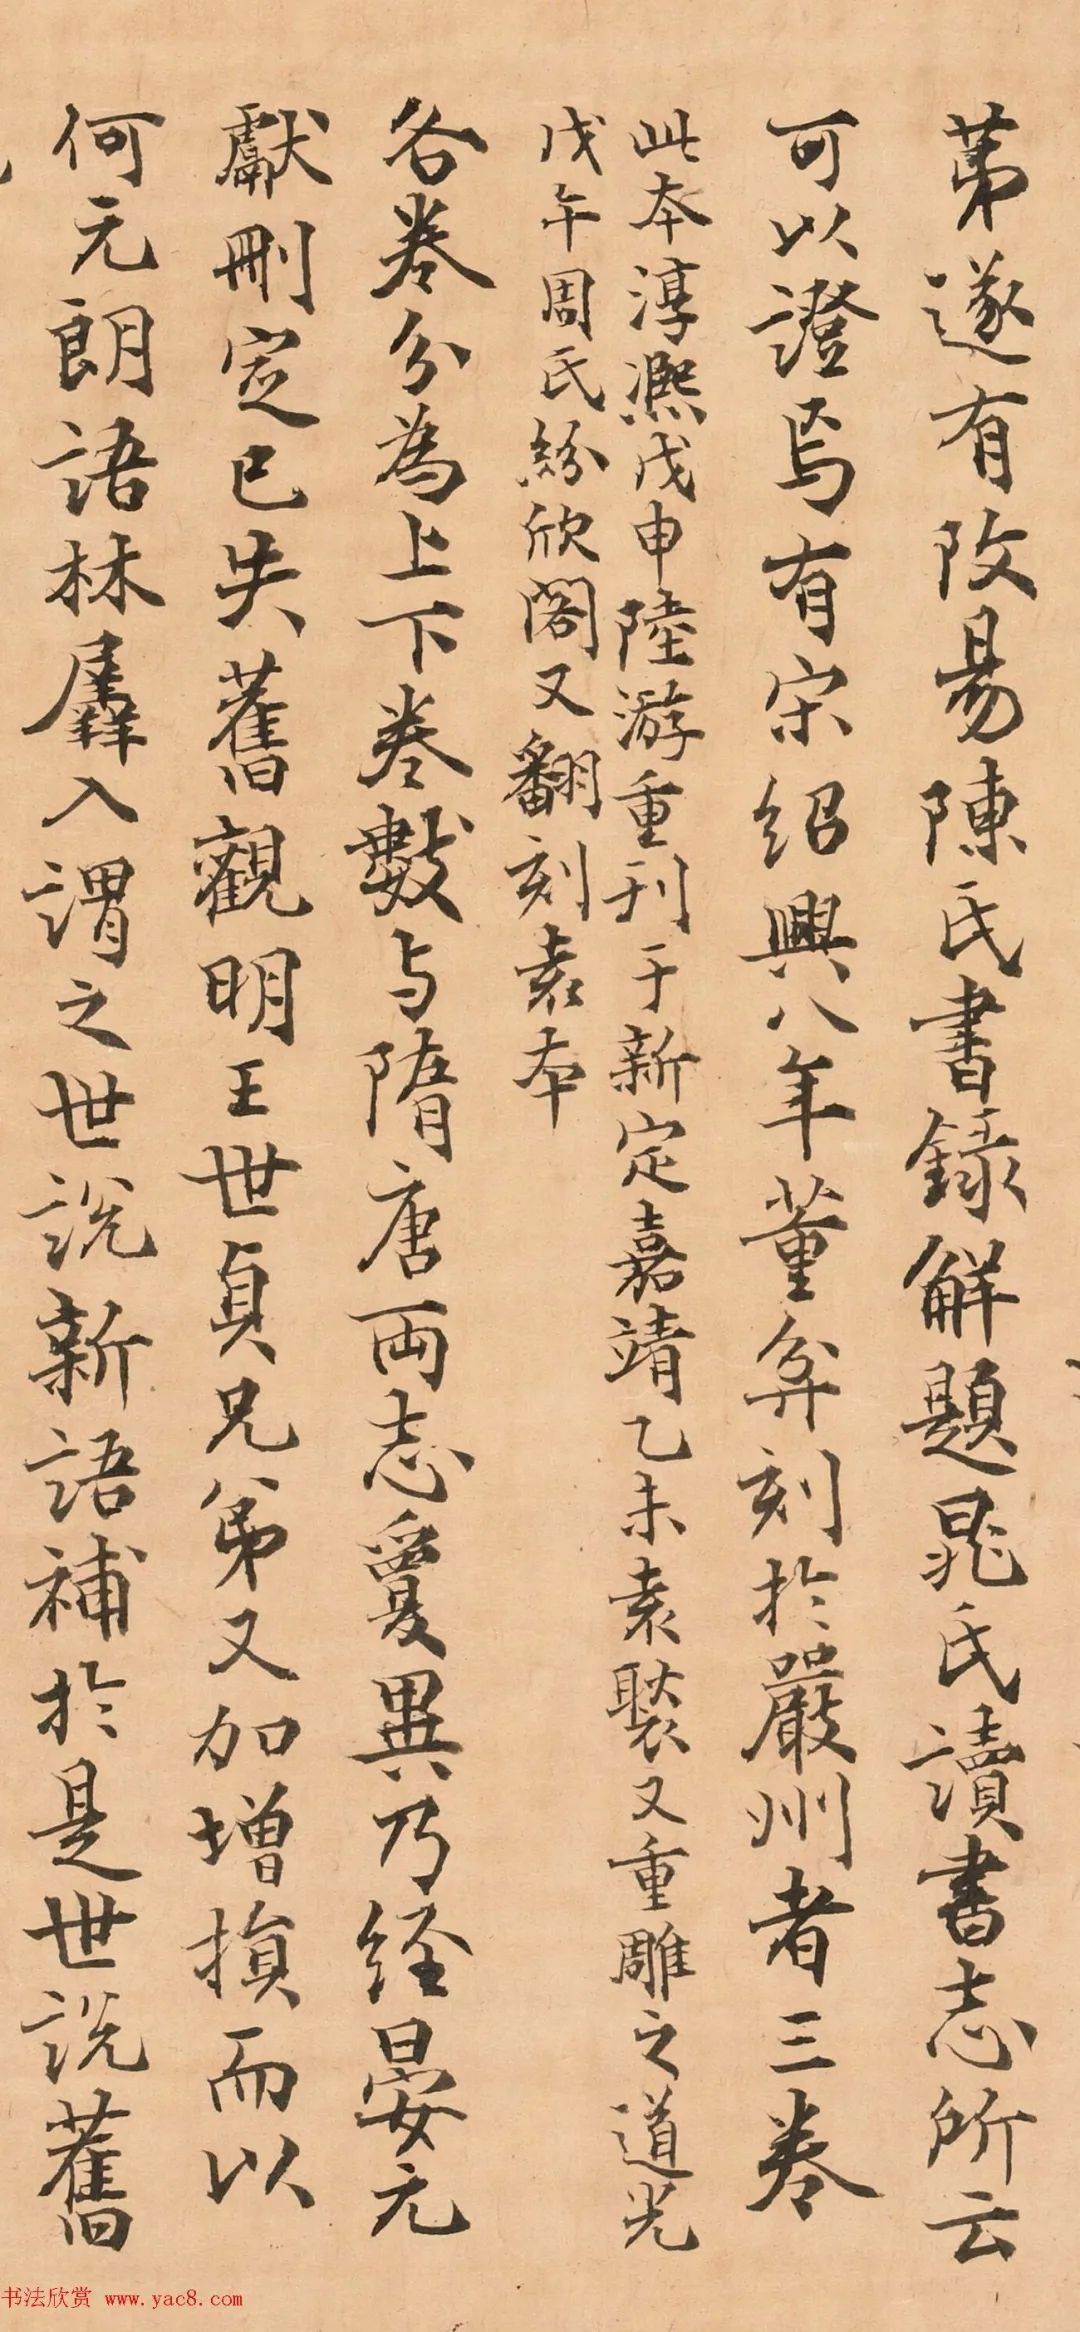 苐遂有改易陳氏書録解題晁氏讀書志所云
可以證焉有宋紹興八年董弅刻於嚴州者三卷
此本淳熙戊申陸游重刊于新定嘉靖乙未袁褧又重雕之道光
戊午周氏紛欣閣又翻刻袁本
各卷分為上下卷數与隋唐兩志夐異乃經晏元
獻刪定已失舊觀明王世貞兄弟又加增損而以
何元朗語林羼入謂之世說新語補於是世說舊
书法欣赏 www.yac8.com